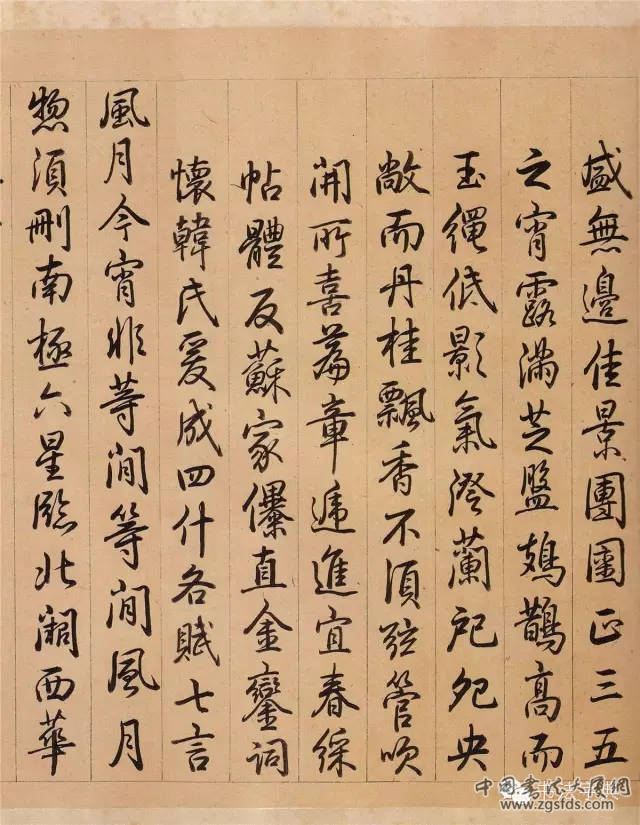 盛無邊佳景團圞正三五
之宵露滿芝盤鳷鵲高而
玉繩低影氣澄蘭戺夗央
敞而丹桂飄香不須弦管吹
開所喜萹章遞進宜春綵
帖體反蘇家儤直金鑾詞
懷韓氏爰成四什各賦七言
風月今宵非等閒等閒風月
惣須刪南極六星臨北闕西華
中国书法大厦网
www.zgsfds.com